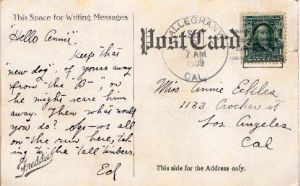 This Space for Writing Messages
Post Card
ALLEGHANY
7 AM
1909
CAL.
Hello Annie.
Keep that
new dog of yours away
from "the B-" or
he might scare him
away. Then what would
you do!
us all
on the run here, tak
ing to the tall timbers.
Ed
Freddie
Miss Annie
1123 Crocker st
Los Angeles
Cal
This side for the Address only.